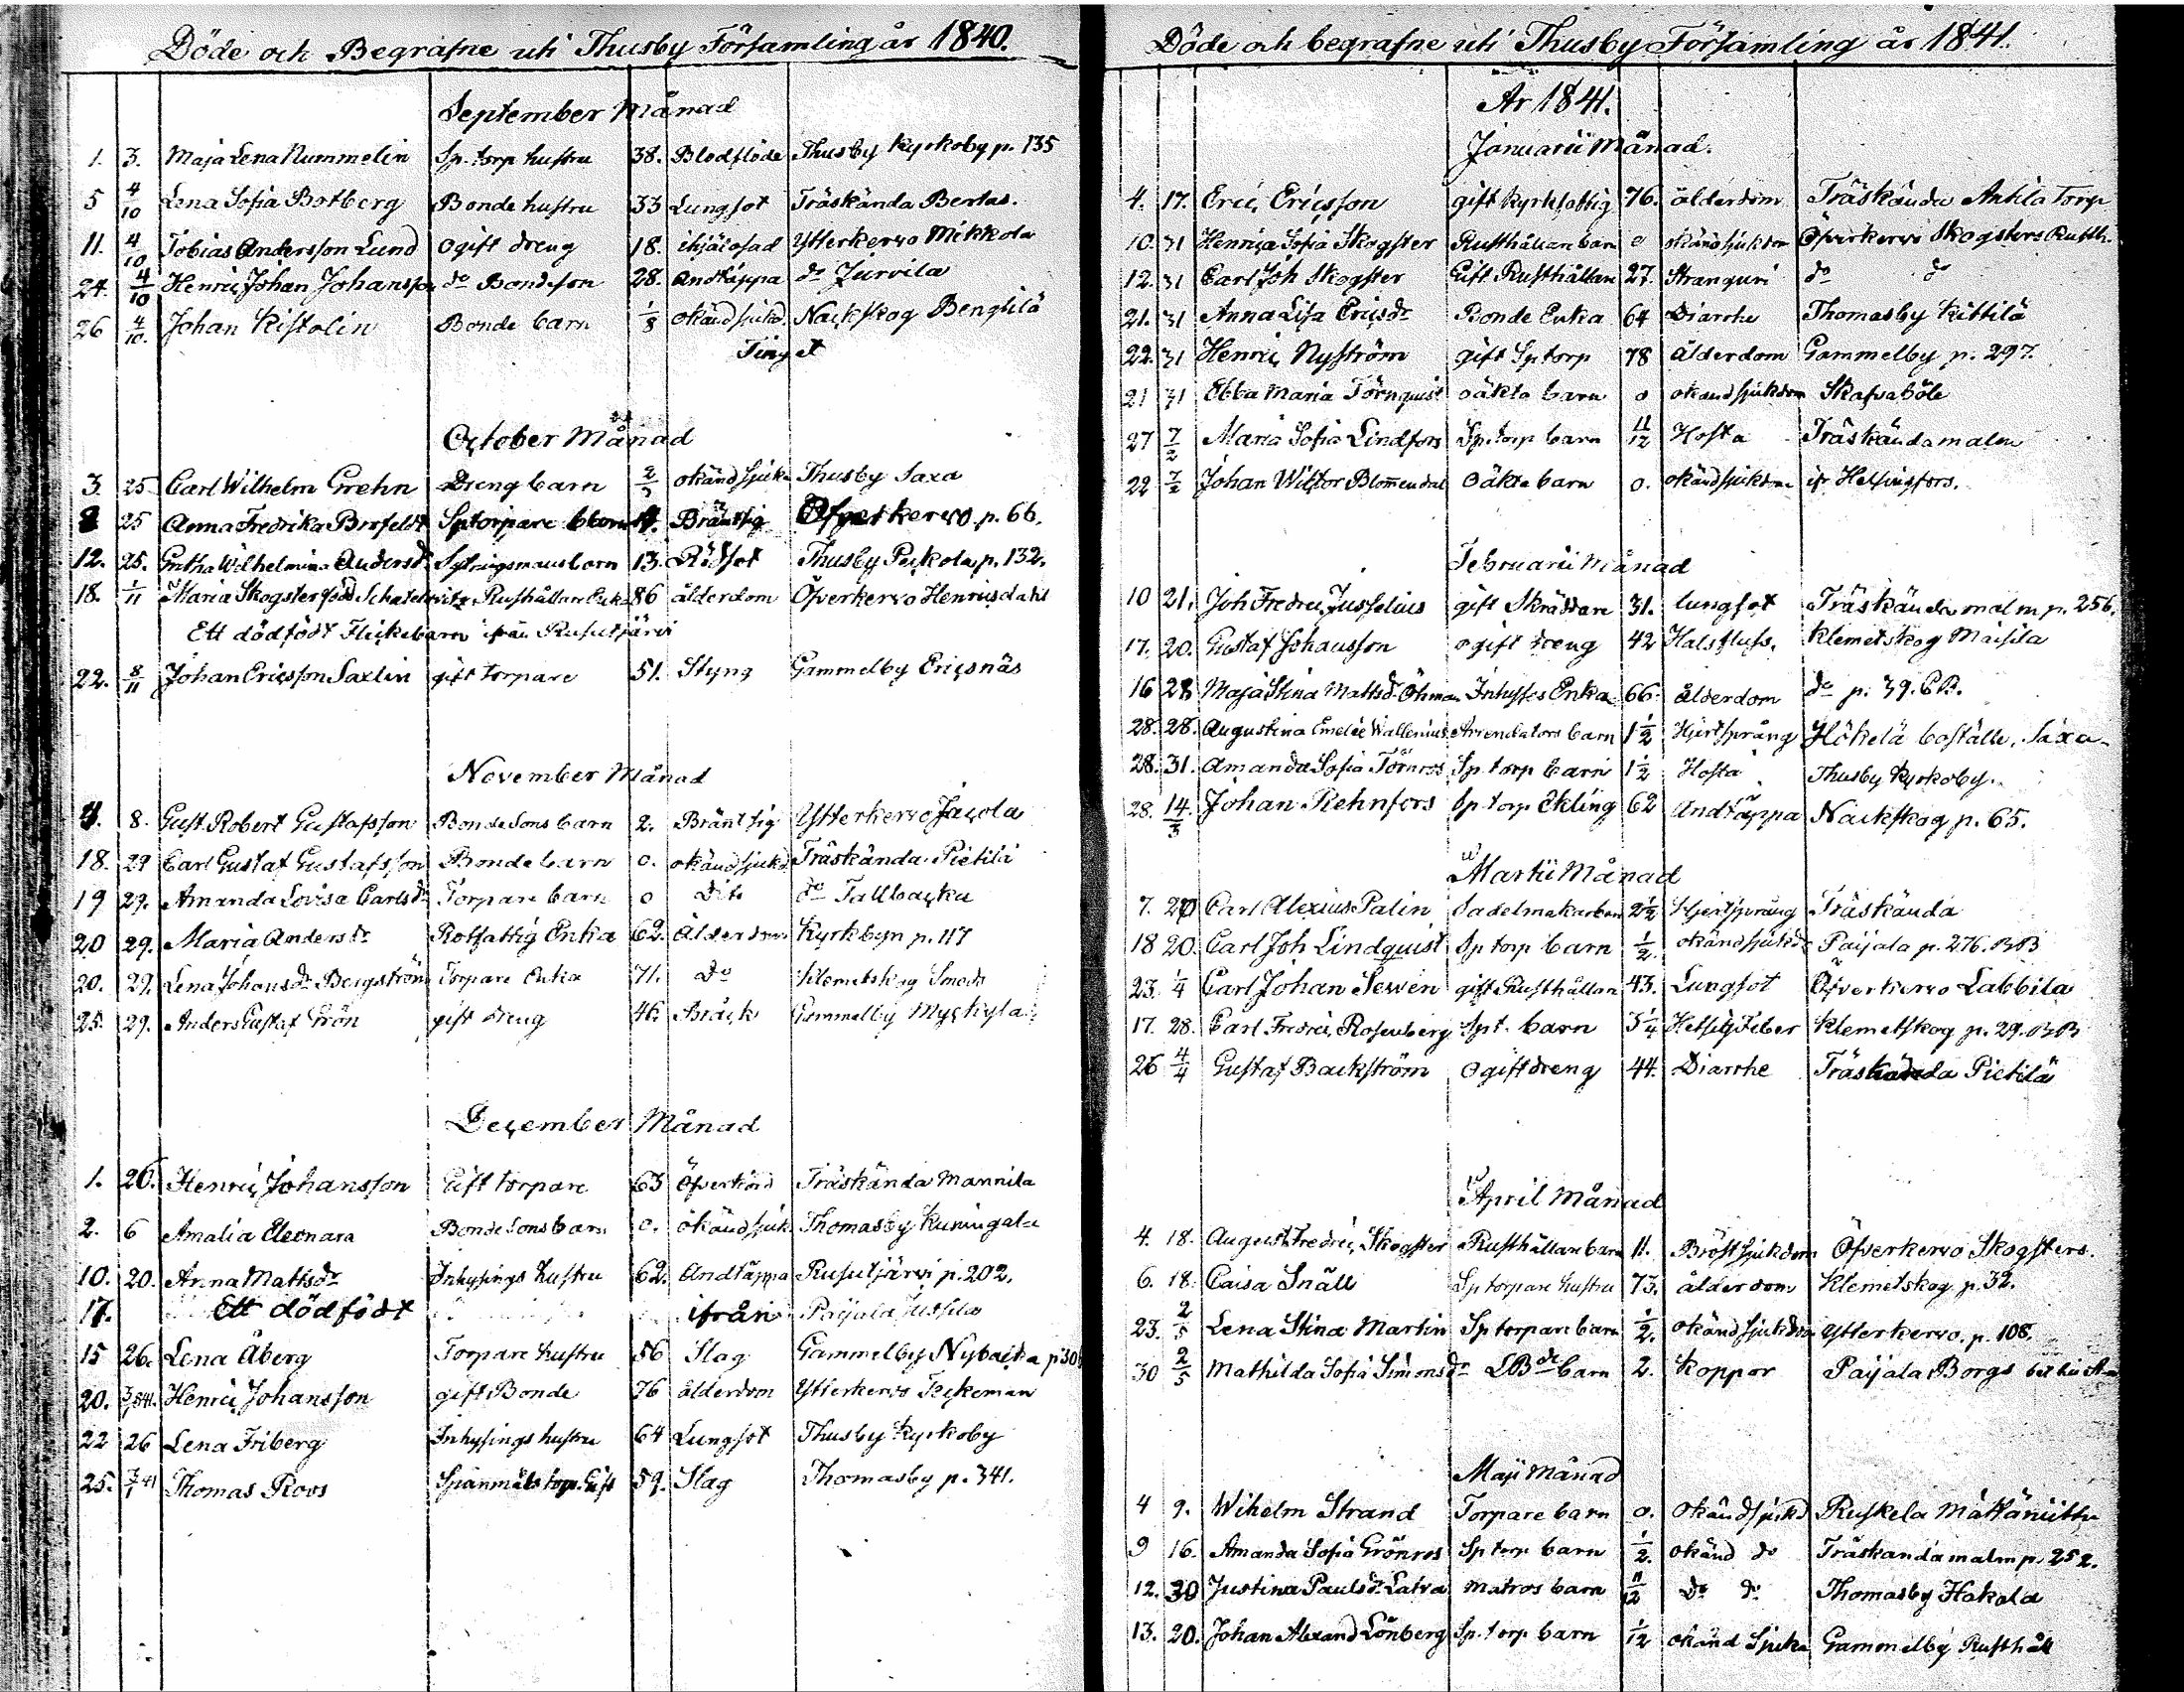 Döde och Begrafne uti Thusby Församling år 1840.
September Månad
1. 3. Maja Lena Nummelin Sp. torp hustru 38. Blodflöde Thusby Kyrkoby p. 135
5 4/10 Lena Sofia Botberg Bonde hustru 33 Lungsot Träskända Bertas.
11. 4/10 Tobias Andersson Lund Ogift dreng 18. ihjälosad Ytterkervo Mikkola
24. 4/10 Henric Johan Johansson do Bondeson 28. Andtäppa do Jurvila
26 4/10. Johan Kistolin Bonde barn 1/8 okänd sjukd. Nackskog Bengtilä
October Månad
3. 25 Carl Wilhelm Grehn Dreng barn okänd sjuk. Thusby Saxa
25 Anna Fredrika Sptorpare Bränsig Öfverkervo p. 66.
12. 25. Gretha Wilhelmina Andersdr Sytningsmans barn 13. Rödsot Thusby Peckola p. 132.
18. 1/11 Maria Skogster född Rusthållare Enka 86 ålderdom Öfverkervo Henricsdahl
Ett dödfödt Flickebarn ifrån Rusutjärvi
22. 8/11 Johan Ericsson Saxlin gift torpare 51. Styng Gammelby Ericsnäs
November Månad
4. 8. Gust. Robert Gustafsson Bonde Sons barn 2. Bräntsig Ytterkervo Jacola
18. 29 Carl Gustaf Gustafsson Bonde barn 0. okänd sjukd. Träskända Pietilä
19 29. Amanda Lovisa Carlsdr Torpare barn 0 Dito do Tallbacka
20 29. Maria Andersdr Rotfattig Enka 62. Ålderdom Kyrkbyn p. 117
20. 29. Lena Johansdr Bergström Torpare Enka 71. Do Klemetskog Smeds
25. 29. Anders Gustaf Grön gift dreng 46. Bråck Gammelby Myckylä
December Månad
1. 26. Henric Johansson Gift torpare 63 Öfverkörd Träskända Mannila
2. 6 Amalia Eleonara Bonde Sons barn 0. okänd sjuk. Thomasby Kuningala
10. 20. Anna Mattsdr Inhysings hustru 62. Andtäppa Rusutjärvi p. 202.
17. Ett dödfödt ifrån Paijala Jussila
15 26. Lena Åberg Torpare hustru 56 Slag Gammelby Nybacka
20. 3/1 841. Henric Johansson gift Bonde 76 ålderdom Ytterkervo
22 26 Lena Friberg Inhysings hustru 64 Lungsot Thusby Kyrkoby
25. 3/1 41 Thomas Roos Spanmåls torp. Gift 59. Slag Thomasby p. 341.
Döde och begrafne uti Thusby Församling år 1841.
År 1841.
Januarii Månad.
4. 17. Eric Ericsson gift kyrkfattig 76. ålderdom Träskända Anhila Torp
10. 31 Henrica Sofia Skogster Rusthållare barn 0 okänd sjukdom Öfverkervo Skogsters Rusth.
12. 31 Carl Joh Skogster Gift Rusthållare 27. Stranguri do do
21. 31 Anna Lisa Ericsdr Bonde Enka 64 Diarrhe Thomasby Kittilä
22. 31 Henric Nyström gift Sp torp 78 ålderdom Gammelby p. 297.
21 31 Ebba Maria Törnquist oäkta barn 0 okänd sjukdom Skafvaböle
27 7/2 Maria Sofia Lindfors Sp. torp barn 11/12 Hosta Träskända malm
22 7/2 Johan Wiktor Blomendal oäkta barn 0. okänd sjukdom ifr Helsingfors.
Februarii Månad
10 21. Joh Fredric Jusselius gift Skräddare 31. lungsot Träskända malm p. 256.
17. 20. Gustaf Johansson ogift dreng 42 Halsfluss. Klemetskog Maisila
16 28 Maja Stina Mattsdr Öhman Inhyses Enka 66. ålderdom do p. 39. BB.
28. 28. Augustina Emelie Wallenius Arrendators barn 1 1/2 Hjertsprång Hökelä boställe, Saxa
28. 31. Amanda Sofia Törnros Sp. torp barn 1 1/2 Hosta Thusby Kyrkoby.
28. 14/3 Johan Rehnfors Sp. torp Ekling 62 Andtäppa Nackskog p. 65.
Martii Månad
7. 20 Carl Alexius Palin Sadelmakarbarn 2 1/2 Hjertsprång Träskända
18 20. Carl Joh Lindquist Sp torp barn 1/2. okänd sjukd. Paijala p. 276. BB
23. 1/4 Carl Johan Sewen gift Rusthållare 43. Lungsot Öfverkervo Labbila
17. 28. Carl Fredric Rosenberg Spt. barn 3 1/4 Hetsig Feber Klemetskog p. 29. BB
26 4/4 Gustaf Backström Ogift dreng 44. Diarrhe Träskända Pietilä
April Månad
4. 18. August Fredric Skogster Rusthållare barn 11. Bröstsjukdom Öfverkervo Skogsters.
6. 18. Caisa Snäll Sp torpare hustru 73. ålderdom Klemetskog p. 32.
23. 2/5 Lena Stina Martin Sp torpare barn 1/2. okänd sjukdom Ytterkervo. p. 108.
30 2/5 Mathilda Sofia Simonsdr barn 2. koppor Paijala Borgs
Maji Månad
4 9. Wihelm Strand Torpare barn 0. Okänd sjukd Ruskela Mattäniittu
9 16. Amanda Sofia Grönros Sp torp barn 1/2. okänd do Träskanda malm p. 252.
12. 30 Justina Paulsdr Latva matros barn 11/12 Do do Thomasby Hakala
13. 20. Johan Alexand Lönberg Sp. torp barn 1/12 okänd Sjuka Gammelby Rusthåll